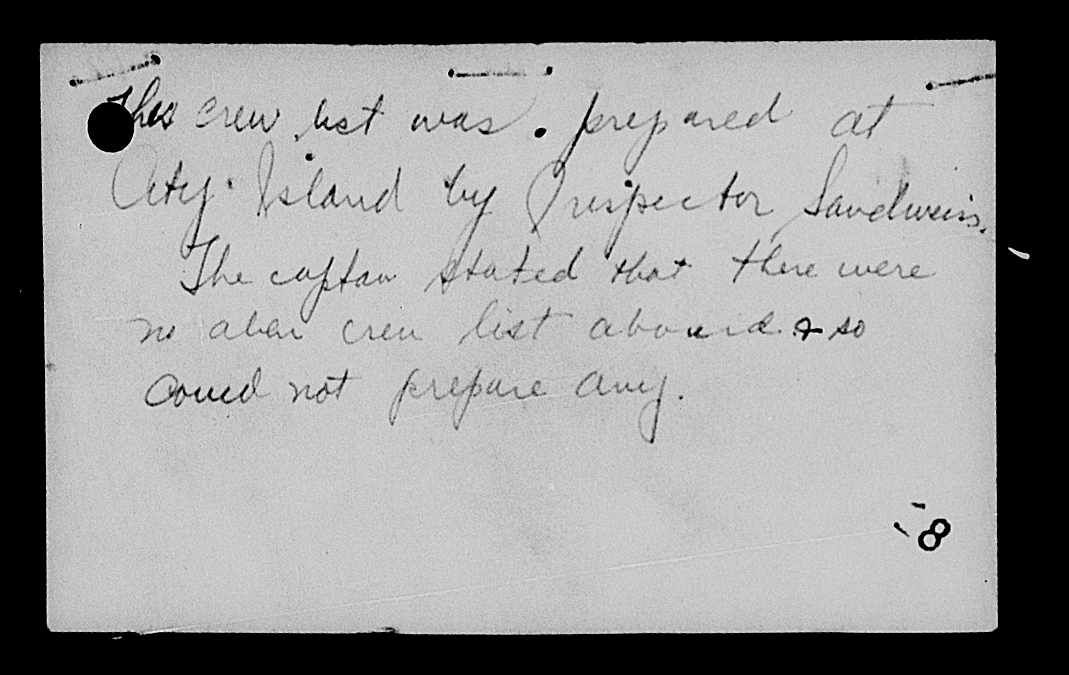 This crew list was prepared at
City Island by Inspector Sandweiss.
The captain stated that there were
no alien crew list aboard & so
could not prepare any.
8